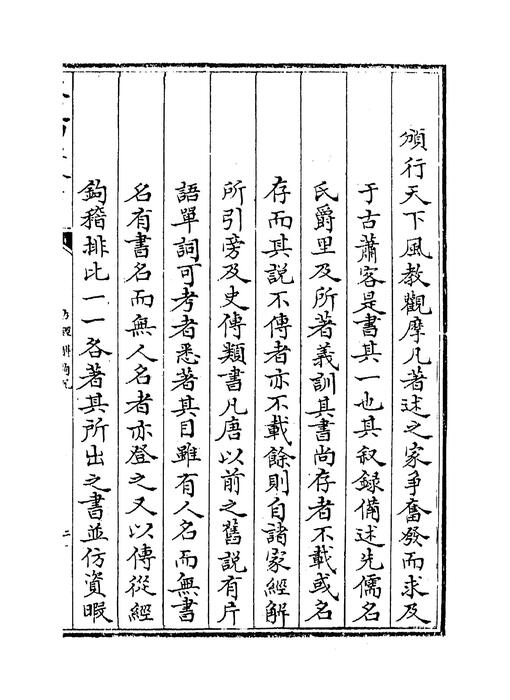 頒行天下風教觀摩凡著述之家争奮發而求及
于古蕭客是書其一也其叙録備述先儒名
氏爵里及所著義訓其書尚存者不載或名
存而其說不傳者亦不載餘則自諸家經解
所引旁及史傳類書凡唐以前之舊說有片
語單詞可考者悉著其目雖有人名而無書
名有書名而無人名者亦登之又以傳從經
鉤稽排比一一各著其所出之書並仿資暇